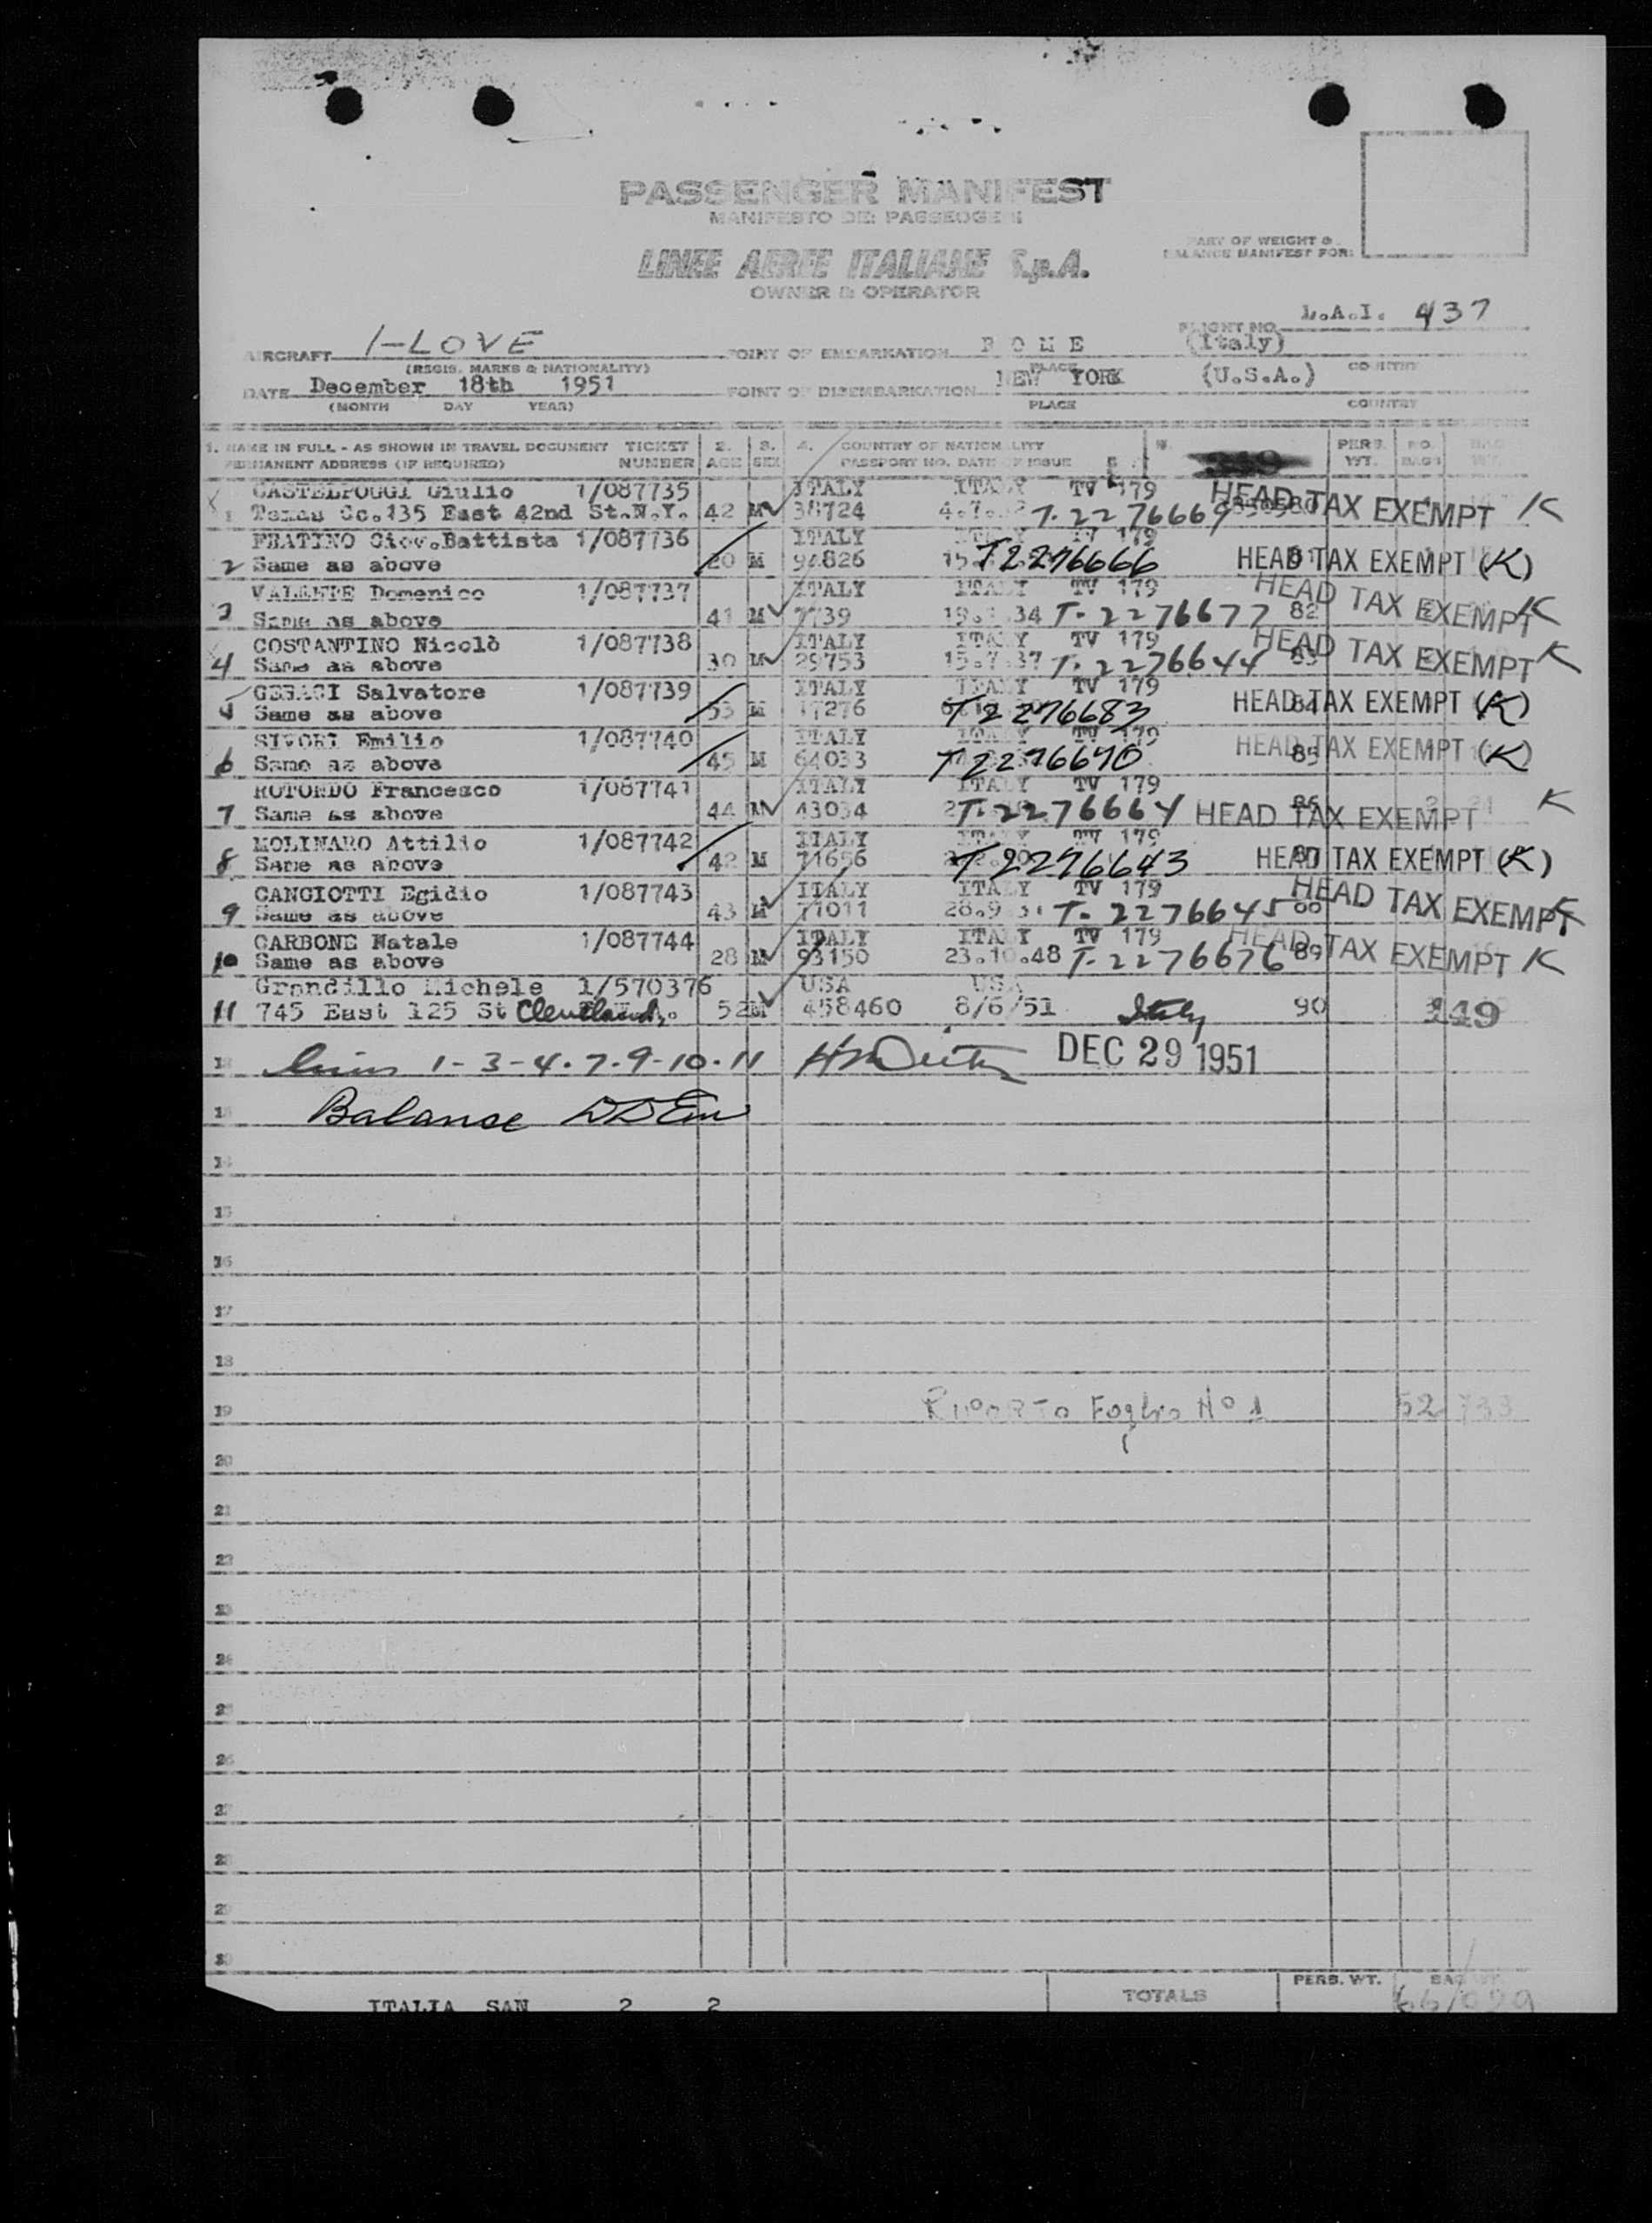 PASSENGER MANIFEST
MANIFESTO DEI PASSEGGERI
LINEE AEREE ITALIANE S.p.A.
OWNER & OPERATOR
PART OF WEIGHT &
BALANCE MANIFEST FOR:
AIRCRAFT I-LOVE
(REGIS. MARKS & NATIONALITY)
POINT OF EMBARKATION ROME (Italy)
PLACE COUNTRY
FLIGHT NO. L.A.I. 437
DATE December 18th 1951
(MONTH DAY YEAR)
POINT OF DISEMBARKATION NEW YORK (U.S.A.)
PLACE COUNTRY
1. NAME IN FULL - AS SHOWN IN TRAVEL DOCUMENT TICKET 2. 3. 4. COUNTRY OF NATIONALITY PERS. NO. BAG
PERMANENT ADDRESS (IF REQUIRED) NUMBER AGE SEX PASSPORT NO. DATE OF ISSUE 349 WT. BAGS WT.
CASTELPOGGI Giulio 1/087735 ITALY ITALY TV 179
1 Texas Co.135 East 42nd St.N.Y. 42 M 38724 HEAD TAX EXEMPT K
Giov.Battista 1/087736 ITALY ITALY TV 179
2 Same as above 20 M 94826 T2276666 HEAD TAX EXEMPT (K)
VALENTE Domenico 1/087737 ITALY ITALY TV 179
3 Same as above 41 M 7739 T-2276677 82 HEAD TAX EXEMPT K
COSTANTINO Nicolò 1/087738 ITALY ITALY TV 179
4 Same as above 30 M 29753 15.7.37 T-2276644 83 HEAD TAX EXEMPT K
GERACI Salvatore 1/087739 ITALY ITALY TV 179
5 Same as above 53 M 17276 T2276683 84 HEAD TAX EXEMPT (K)
SIVORI Emilio 1/087740 ITALY ITALY TV 179
6 Same as above 45 M 64033 T2276670 85 HEAD TAX EXEMPT (K)
ROTONDO Francesco 1/087741 ITALY ITALY TV 179
7 Same as above 44 M 43034 T-2276664 86 HEAD TAX EXEMPT K
MOLINARO Attilio 1/087742 ITALY ITALY TV 179
8 Same as above 42 M 71656 T2276643 87 HEAD TAX EXEMPT (K)
CANGIOTTI Egidio 1/087743 ITALY ITALY TV 179
9 Same as above 43 M 71011 T-2276645 HEAD TAX EXEMPT K
CARBONE Natale 1/087744 ITALY ITALY TV 179
10 Same as above 28 M 93150 23.10.48 T-2276676 89 HEAD TAX EXEMPT K
Grandillo Michele 1/570376 USA USA
11 745 East 125 St Cleveland, 52 M 458460 8/6/51 Italy 90 149
12 1-3-4-7-9-10-11 DEC 29 1951
13 Balance
14
15
16
17
18
19 Riporto Foglio No 1 52 733
20
21
22
23
24
25
26
27
28
29
30
TOTALS PERS. WT. BAG WT.
ITALIA SAN 2 2 66/